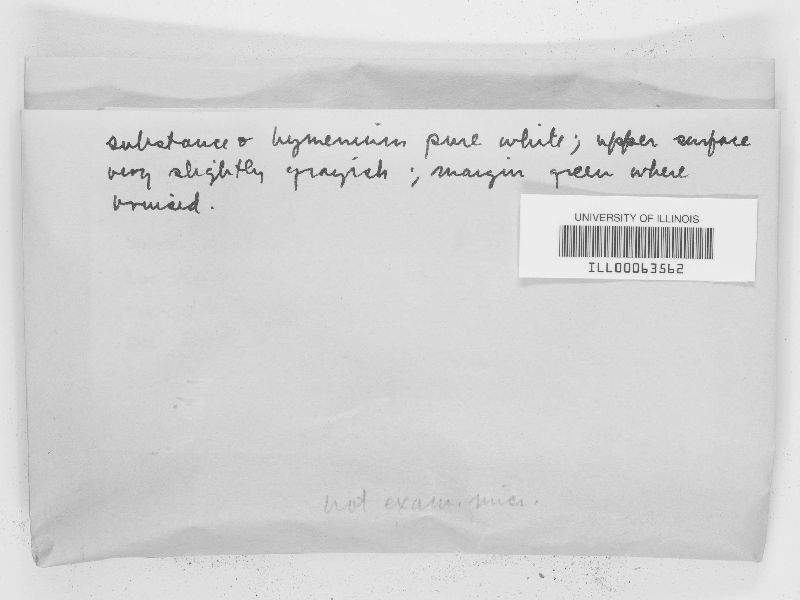 substance & hymenium pure white; upper surface
very slightly grayish; margin green where
bruised.
UNIVERSITY OF ILLINOIS
ILL00063562
not exam. micr.